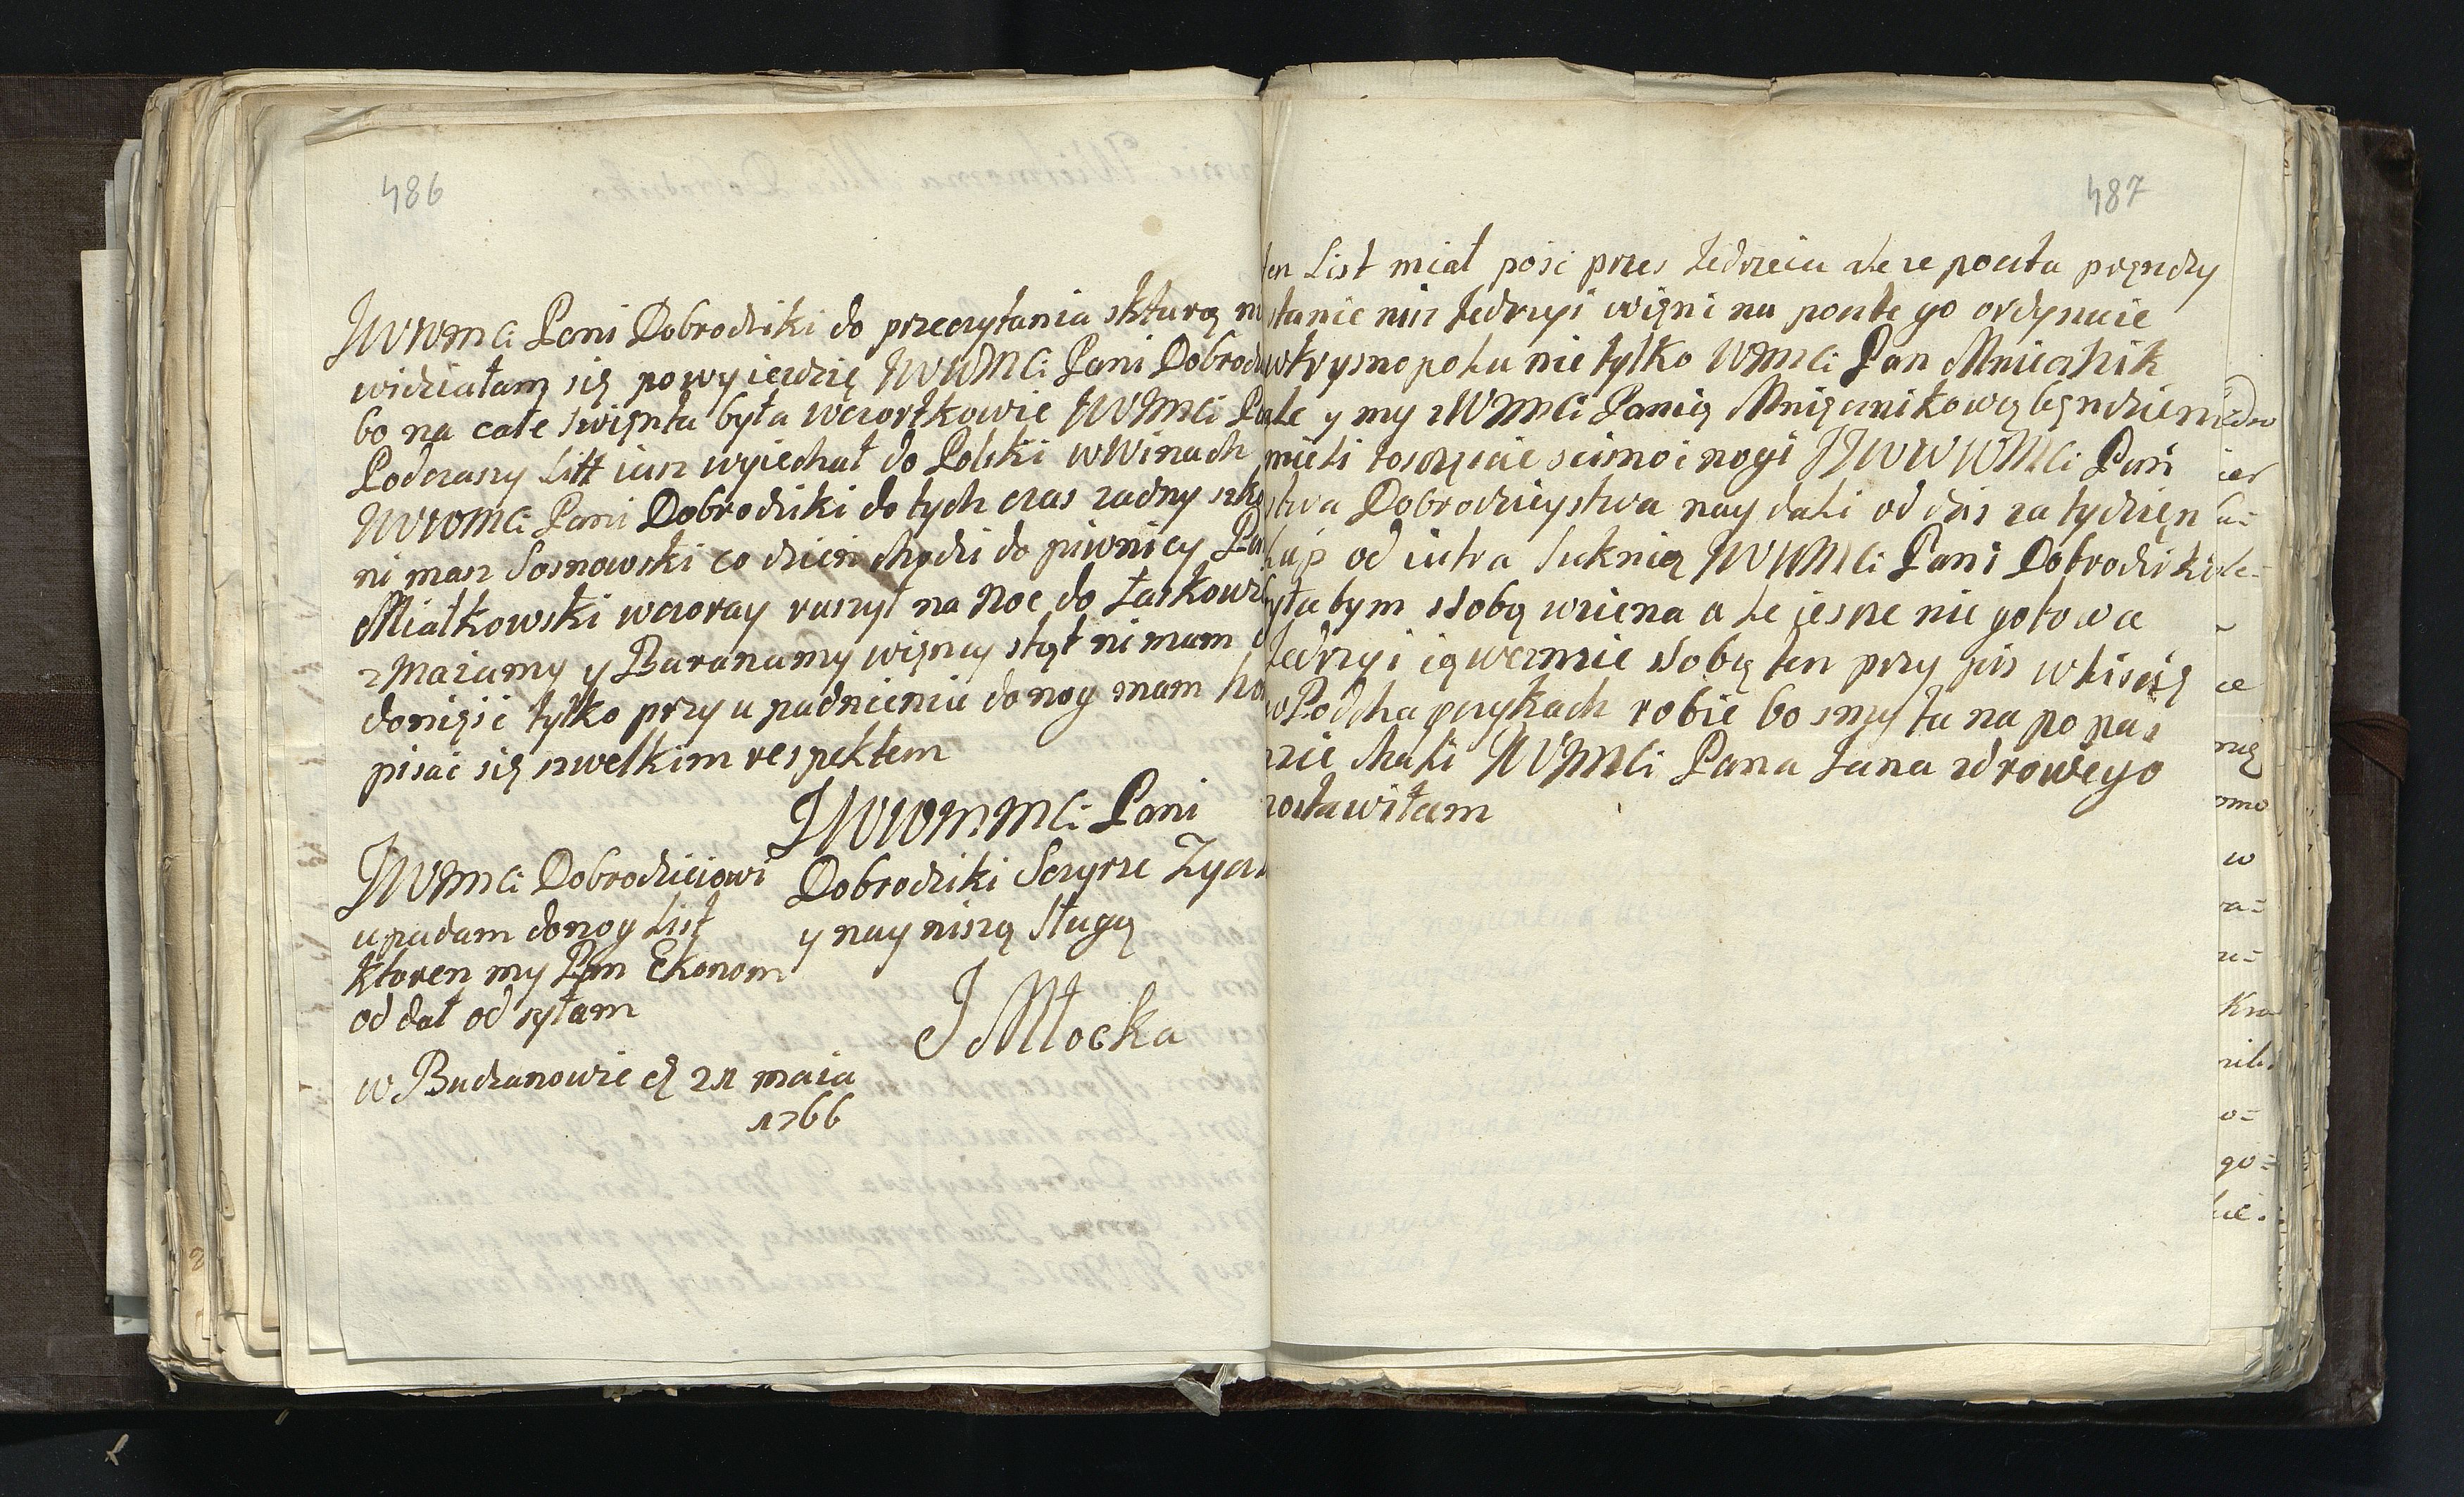 486
JWWMCi Pani Dobrodziki do przeczytania skturą
widziałam się powyiezdzię JWWMCi Pani
bo na całe swięnta była wczortkowie JWMCi
Podczaszy Litt iusz wyiechał do Polskii wWinach
JWWMCi Pani Dobrodziki do tych czas zadny
ni masz Sosnowski co dzień chędzi do piwnicy
Miałkowski wczoray ruszył na Noc do
zMazamy y Baranamy więncy stąt ni mam
donięsić tylko przy u padnieniu donog mam
pisać się zwelkim respektem
JWWMMCi Pani
Dobrodziki Sczyrze
y nay niszą Sługą
J Młocka
JWMCi Dobrodzieiowi
upadam donog List
ktoren my Pan Ekonom
od dał od syłam
w Budzanowie d 21 maia
1766
487
ten List miał posc przes Jedrzeia ale ze poczta pręndzy
stanie nisz Jedrzyi więni na poczte go ordynuie
wkrysnopolu nie tylko WMCi Pan Mniecznik
ale y my zWMCi Panią Mnięcznikową bęndziem
mieli sczęscie scisnoc nogi JJWWWMCi Pań
stwa Dobrodzieystwa nay dali od dzis za tydzięn
od iutra Suknią JWWMCi Pani Dobrodziki
bym ssobą wziena ale ieszcze nie gotowa
Jedrzyi ią wezmie ssobą ten przy pis wliscię
wPodhayczykach robie bo smy tu na po pas
zie chali JWMCi Pana Jana zdrowego
zostawiłam